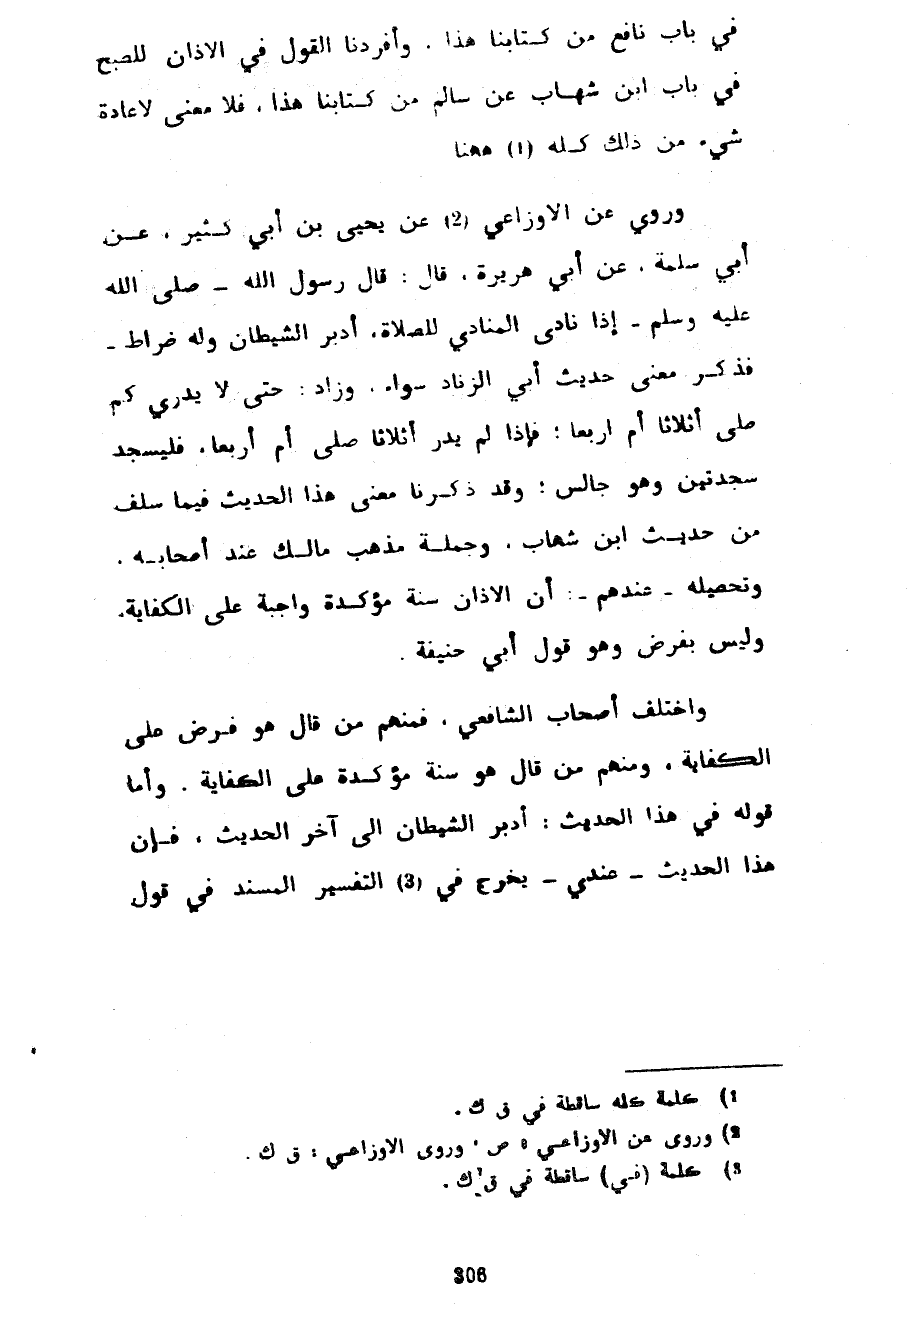 في باب نافع من كتابنا هذا ، وأفردنا القول في الاذان للصبح
في باب ابن شهاب عن سالم من كتابنا هذا ، فلا معنى لاعادة
شيء من ذلك كله (1) ههنا
وروي عن الاوزاعي (2) عن يحيى بن أبي كثير ، عن
أبي سلمة ، عن أبي هريرة ، قال : قال رسول الله ـ صلى الله
عليه وسلم ـ إذا نادى المنادي للصلاة، أدبر الشيطان وله ضراط ـ
فذكر معنى حديث أبي الزناد سواء ، وزاد : حتى لا يدري كم
صلى أثلاثا أم اربعا ؛ فإذا لم يدر أثلاثا صلى أم أربعا، فليسجد
سجدتين وهو جالس ؛ وقد ذكرنا معنى هذا الحديث فيما سلف
من حديث ابن شهاب ، وجملة مذهب مالك عند أصحابه .
وتحصيله ـ عندهم ـ : أن الاذان سنة مؤكدة واجبة على الكفاية،
وليس بفرض وهو قول أبي حنيفة .
واختلف أصحاب الشافعي ، فمنهم من قال هو فرض على
الكفاية ، ومنهم من قال هو سنة مؤكدة على الكفاية . وأما
قوله في هذا الحديث : أدبر الشيطان الى آخر الحديث ، فإن
هذا الحديث ـ عندي ـ يخرج في (3) التفسير المسند في قول
1) كلمة كله ساقطة في ق ك .
2) وروى عن الاوزاعي : ص ، وروى الاوزاعي : ق ك .
3) كلمة (في) ساقطة في ق ك .
306